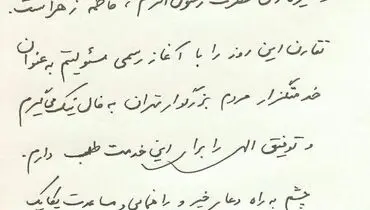 حضرت رسول اکرم، فاطمه زهراست.
تقارن این روز را با آغاز رسمی مسئولیتم به عنوان
خدمتگزار مردم بزرگوار تهران به فال نیک می‌گیرم
و توفیق الهی را برای این خدمت طلب دارم.
چشم به راه دعای خیر و راهنمایی و مساعدت یکایک